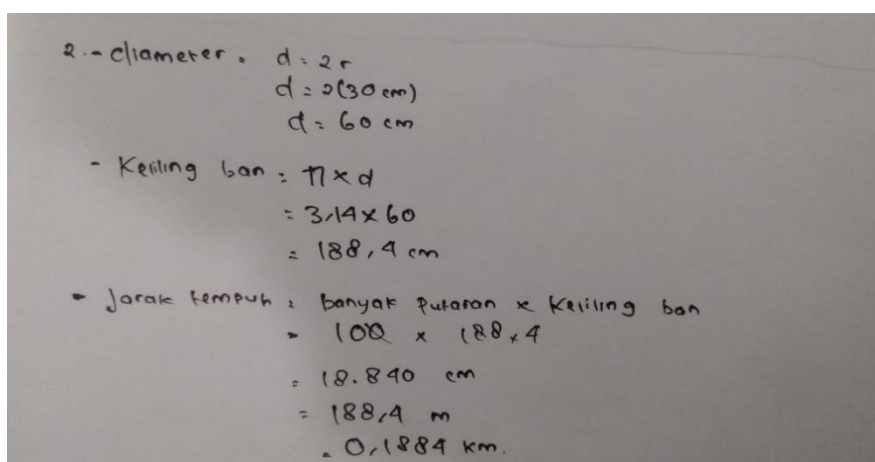 2. - diameter = d = 2r
d = 2(30 cm)
d = 60 cm
- Keliling ban = π x d
= 3,14 x 60
= 188,4 cm
- Jarak tempuh = banyak putaran x Keliling ban
= 100 x 188,4
= 18.840 cm
= 188,4 m
= 0,1884 km.